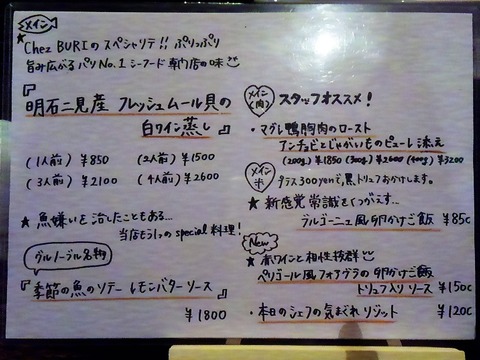 メイン
★ Chez BURIのスペシャリテ!! ぷりっぷり
旨み広がるパリNo.1シーフード専門店の味
『明石二見産 フレッシュムール貝の
白ワイン蒸し』
(1人前) ¥850 (2人前) ¥1500
(3人前) ¥2100 (4人前) ¥2600
★ 魚嫌いを治したこともある...
当店もう1つのspecial料理!
グルノーブル名物
『季節の魚のソテー レモンバターソース』
¥1800
メイン(肉) スタッフオススメ!
・マグレ鴨胸肉のロースト
アンチョビとじゃがいものピューレ添え
(200g) ¥1850 (300g) ¥2600 (400g) ¥3200
メイン 米 プラス300yenで、黒トリュフおかけします。
★ 新感覚 常識をくつがえす...
ブルゴーニュ風卵かけご飯 ¥850
New
★ 赤ワインと相性抜群
ペリゴール風フォアグラの卵かけご飯
トリュフ入りソース ¥1500
・本日のシェフの気まぐれリゾット ¥1200